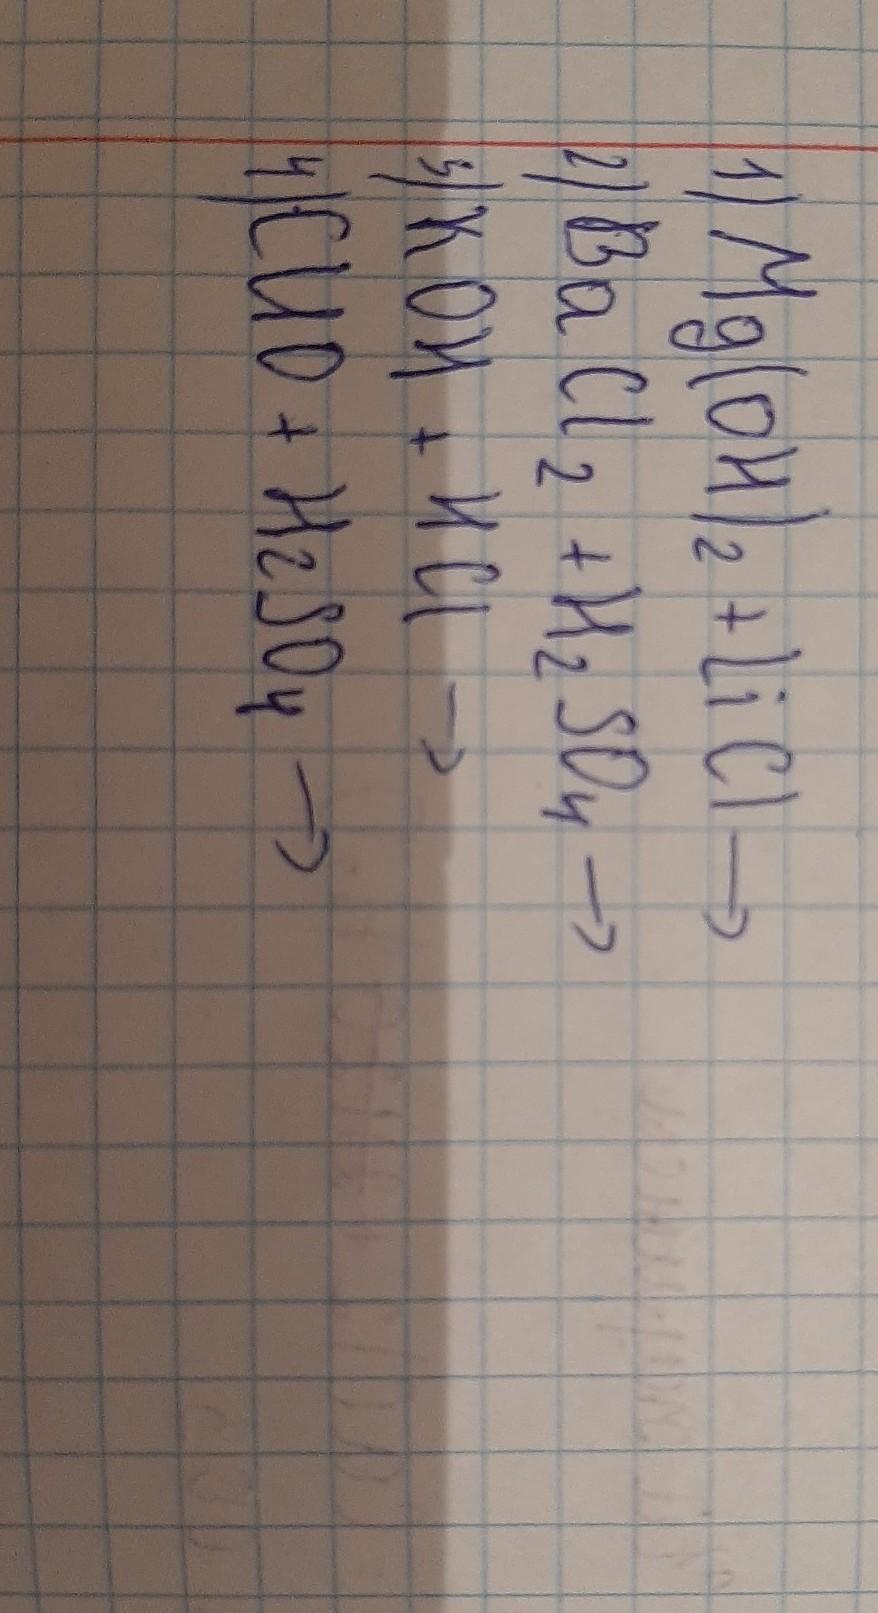 1) Mg(OH)2 + LiCl →
2) BaCl2 + H2SO4 →
3) KOH + HCl →
4) CuO + H2SO4 →